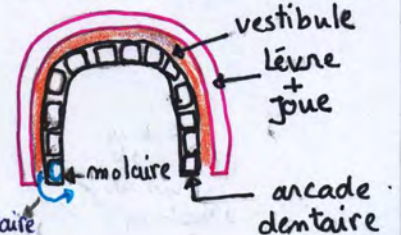 vestibule
Lèvre
+
Joue
molaire
arcade
dentaire
aire